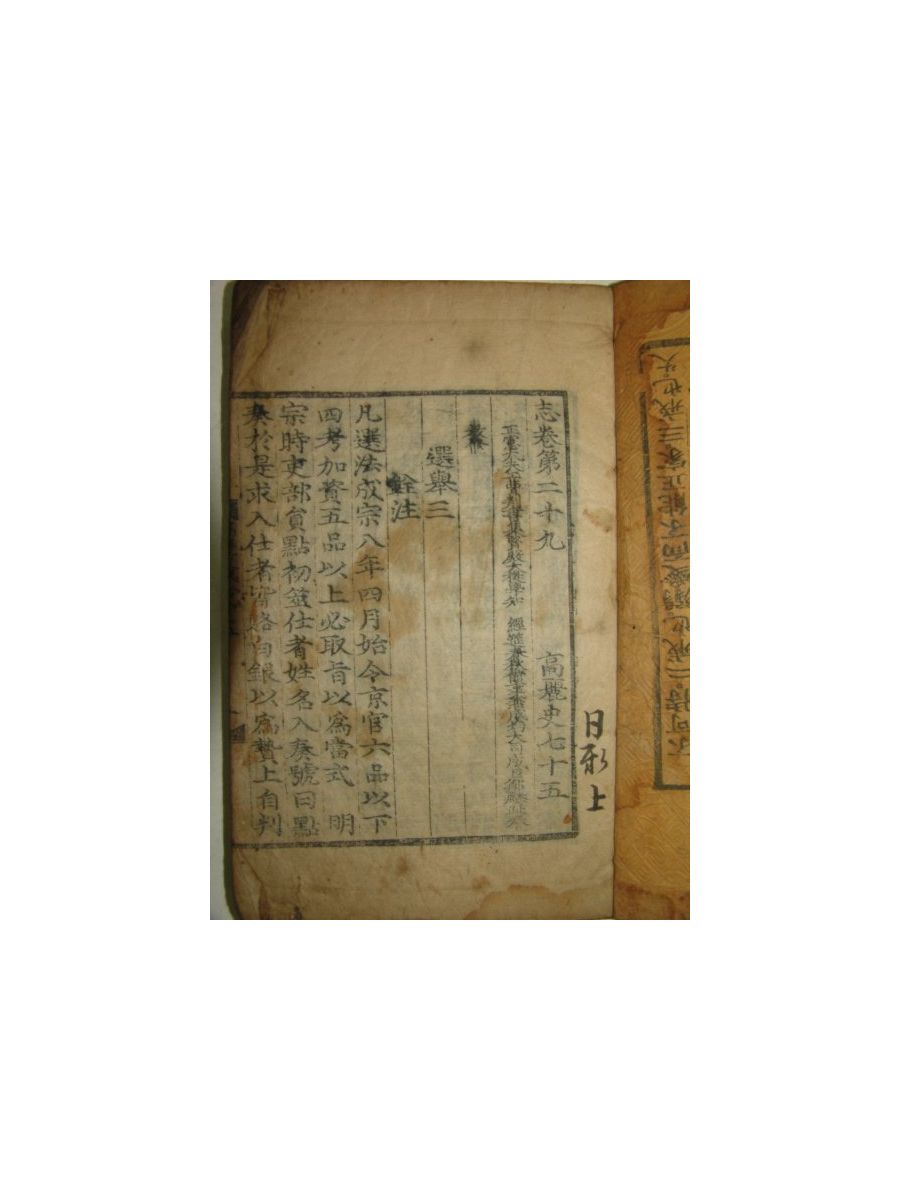 志卷第二十九 高麗史七十五
正憲大夫工曹判書集賢殿大提學知 經筵春秋館事兼成均大司成臣鄭麟趾奉
教修
選舉三
銓注
凡選法成宗八年四月始令京官六品以下
四考加資五品以上必取旨以爲當式 明
宗時吏部員點初筮仕者姓名入奏號曰點
奏於是求入仕者皆賂白銀以爲贄上自判
日 上
不可恃二戒也 而不能正家三戒也失